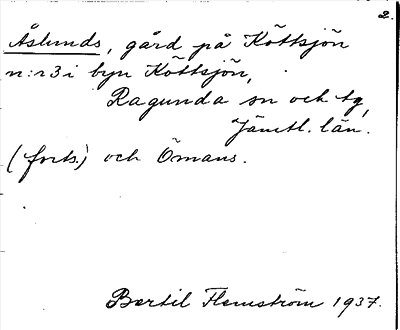 2.
Åslunds, gård på Köttsjön
n:r 3 i byn Köttsjön,
Ragunda sn och tg,
Jämtl. län.
(forts.) och Ömans.
Bertil Flemström 1937.